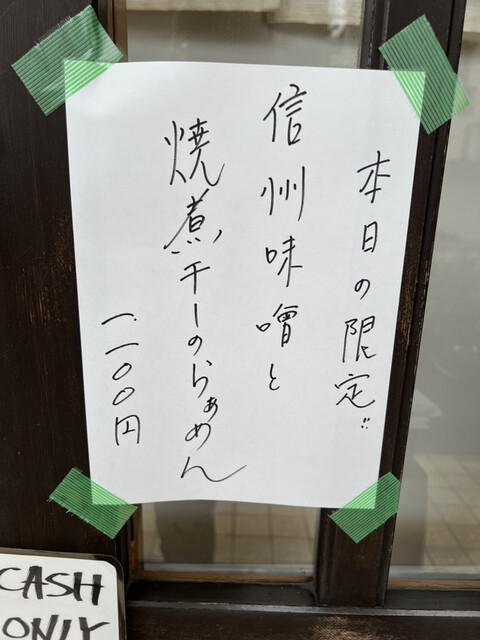 本日の限定
信州味噌と
焼煮干しのらぁめん
一一〇〇円
CASH
ONLY